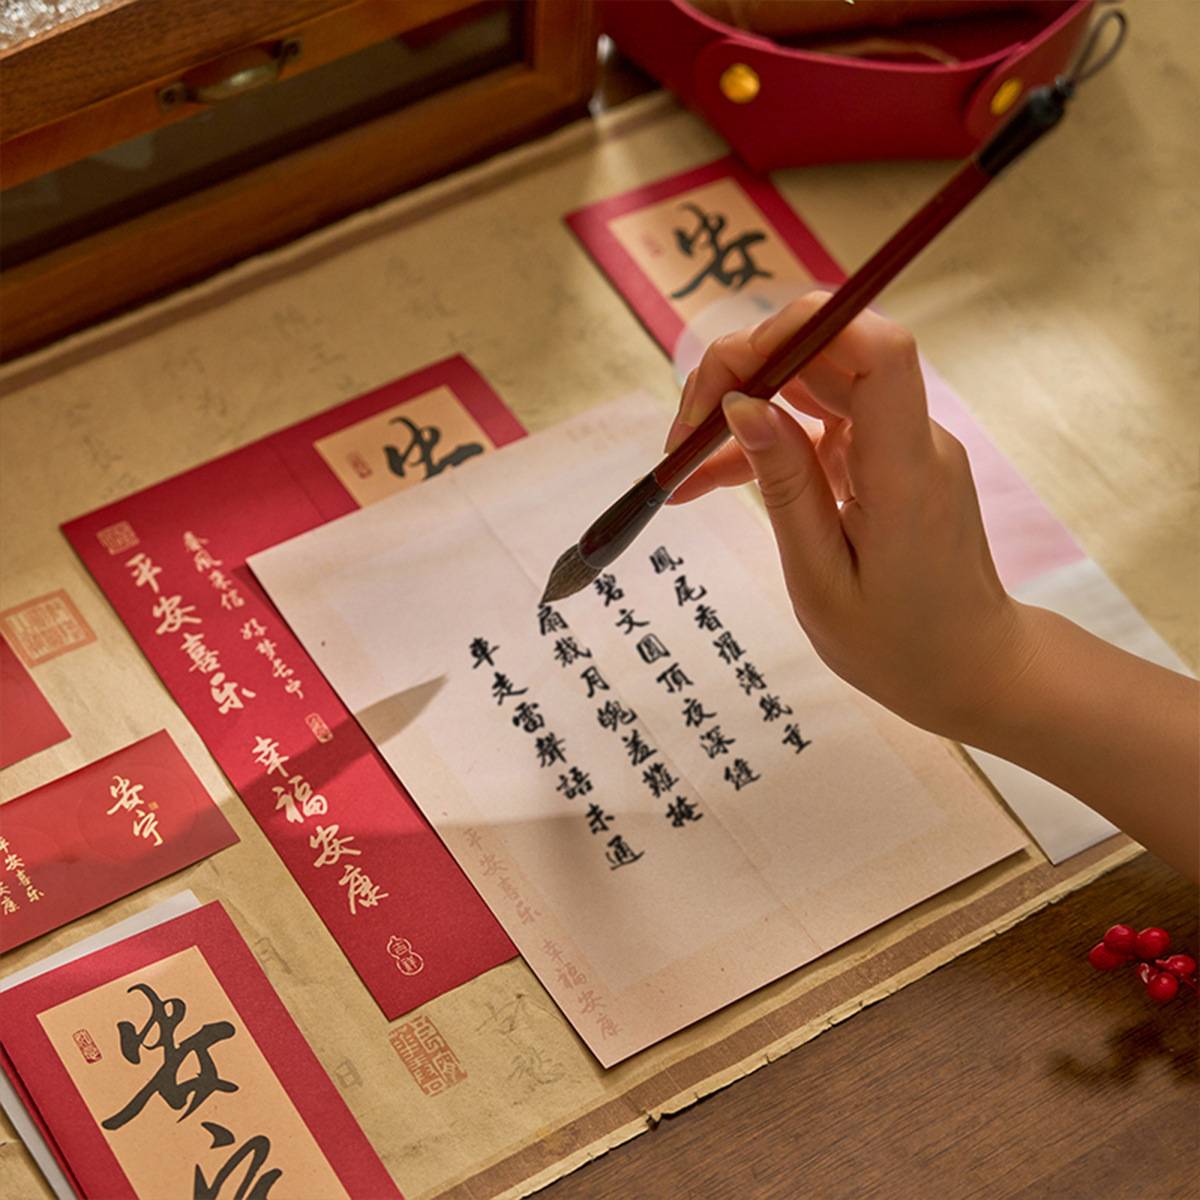 鳳尾香羅薄幾重
碧文圓頂夜深縫
扇裁月魄羞難掩
車走雷聲語未通
平安喜乐 幸福安康
安
来信 好梦
平安喜乐 幸福安康
吉祥
安宁
平安喜乐
安康
安宁